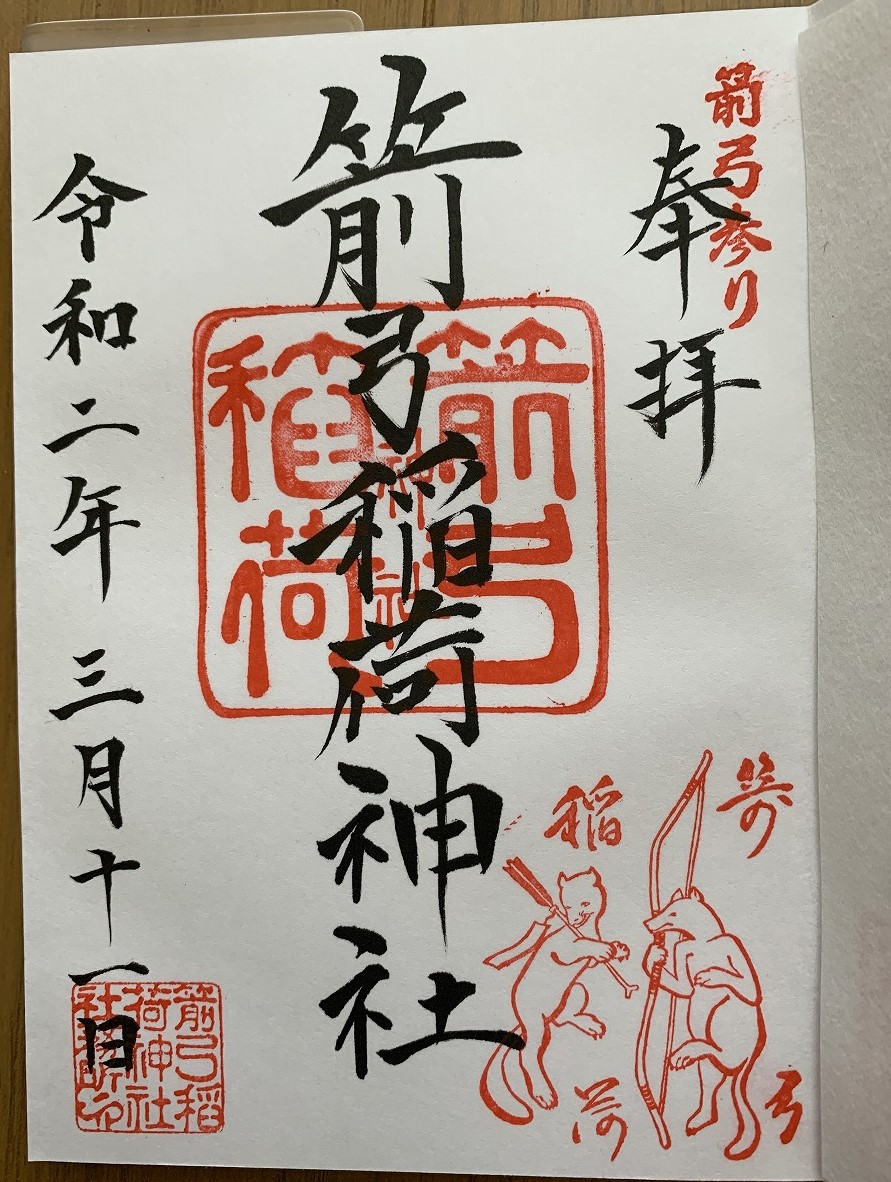 箭弓参り
奉拝
箭弓稲荷神社
箭弓
稲荷
神社
令和二年三月十一日
箭弓稲
荷神社
箭弓
稲荷